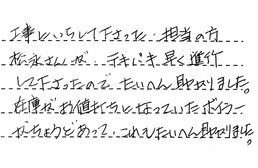 工事にいらして下さった 担当の方
松永さんが テキパキ 早く進行
して下さったので たいへん助かりました。
在庫がお値打ちになっていたボイラー
がちょうどあって これもたいへん助かりました。